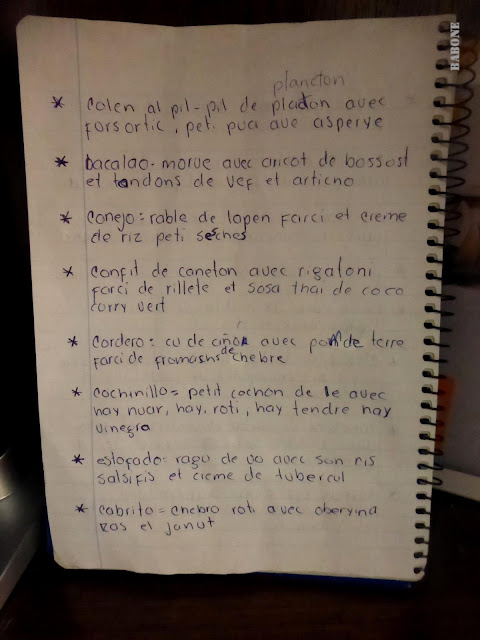 BABONE
plancton
* colen al pil-pil de platon avec
forsortic, peti pua ave asperye
* bacalao - morue avec aricot de bossost
et tandons de vef et articho
* conejo: rable de lapen farci et creme
de riz peti seches
* confit de caneton avec rigatoni
farci de rillete et sosa thai de coco
corry vert
* cordero: cu de año avec pom de terre
farci de fromashs de chebre
* cochinillo = petit cochon de le avec
hay nuar, hay roti, hay tendre hay
vinegra
* estofado = ragu de vo avec son ris
salsifis et creme de tubercul
* cabrito = chebro roti avec oberyina
ras el janut